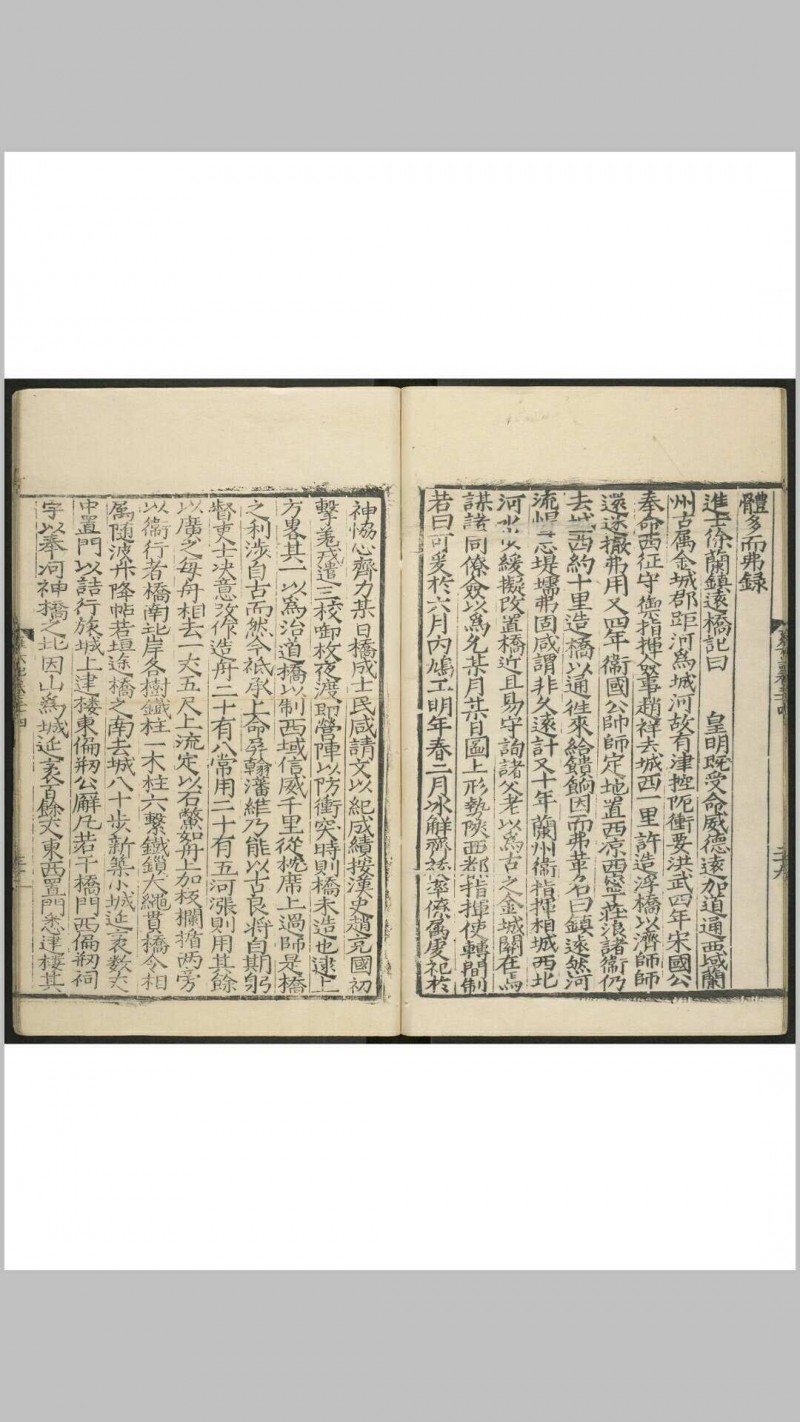 體多而弗録
進士徐蘭鎮遠橋記曰 皇明既受命威德遠加道通西域蘭
州古属金城郡距河為城河故有津控阨衝要洪武四年宋國公
奉命西征守禦指揮僉事趙祥去城西一里許造浮橋以濟師師
還遂撤弗用又四年衞國公帥師定地置西凉西寧莊浪諸衞仍
去城西約十里造橋以通徃來給饋餉因而弗革名曰鎮遠然河
流悍堤壖弗固咸謂非久遠計又十年蘭州衞指揮相城西北
河水緩擬改置橋近且易守詢諸父老以為古之金城關在焉
謀諸同僚僉以為允某月某日圖上形勢陝西都指揮使轉聞制
若曰可爰於六月内鳩工明年春二月冰觧齋率僚属䖍祀於
神恊心齊力某日橋成士民咸請文以紀成績按漢史趙充國初
擊羌夜遣三校啣枚夜渡即營陣以防衝突時則橋未造也逮上
方畧其一以為治道橋以制西域信威千里從枕席上過師是橋
之利涉自古而然今祗承上命屏翰藩維乃能以古良将自期躬
督吏士决意改作造舟二十有八常用二十有五河漲則用其餘
以廣之每舟相去一丈五尺上流定以石鱉如舟上加板欄楯两旁
以衞行者橋南北岸各樹鐵柱一木柱六繫鐵鎖大繩貫橋令相
属随波升降帖若垣途橋之南去城八十步新築小城延袤數丈
中置門以詰行旅城上建樓東偏剏公廨凡若干橋門西偏剏祠
宇以奉河神橋之北因山為城延袤百餘丈東西置門悉建樓其